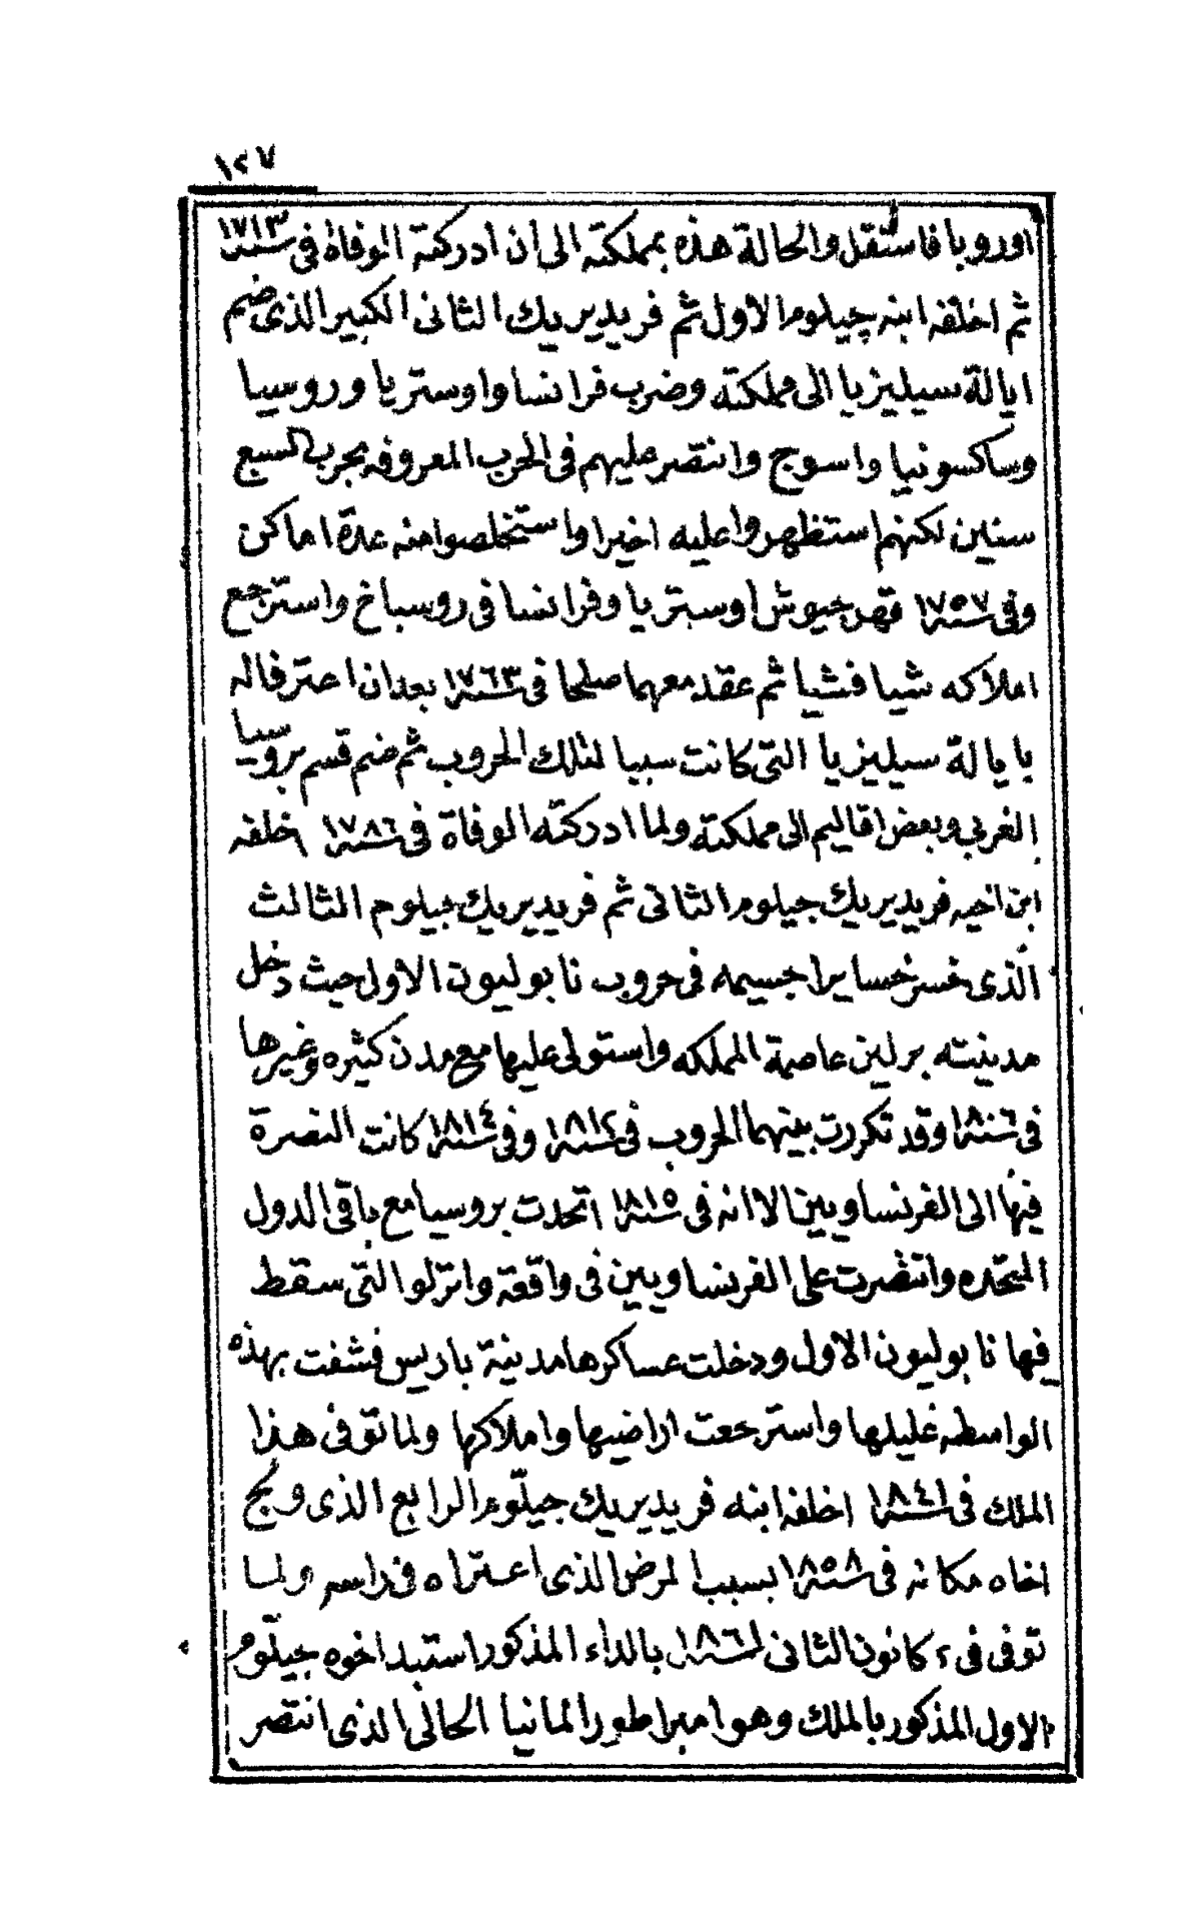 ١٢٧
اوروبا فاستقل والحالة هذه بمملكته الى ان ادركته الوفاة فى سنة ١٧١٣
ثم اخلفه ابنه جيلوم الاول ثم فريديريك الثانى الكبير الذى ضم
ايالة سيليزيا الى مملكته وضرب فرانسا واوستريا وروسيا
وساكسونيا واسوج وانتصر عليهم فى الحرب المعروفه بحرب السبع
سنين لكنهم استظهروا عليه اخيرا واستخلصوا منه عدة اماكن
وفى سنة ١٧٥٧ قهر جيوش اوستريا وفرانسا فى روسباخ واسترجع
املاكه شيا فشيا ثم عقد معهما صلحا فى سنة ١٧٦٣ بعد ان اعترفا له
بايالة سيليزيا التى كانت سببا لتلك الحروب ثم ضم قسم بروسيا
الغربى وبعض اقاليم الى مملكته ولما ادركته الوفاة فى سنة ١٧٨٦ اخلفه
ابن اخيه فريديريك جيلوم الثانى ثم فريديريك جيلوم الثالث
الذى خسر خسايرا جسيمه فى حروب نابوليون الاول حيث دخل
مدينته برلين عاصمة المملكه واستولى عليها مع مدن كثيره وغيرها
فى سنة ١٨٠٦ وقد تكررت بينهما الحروب فى سنة ١٨١٢ وفى سنة ١٨١٤ كانت النصرة
فيها الى الفرنساويين الا انه فى سنة ١٨١٥ اتحدت بروسيا مع باقى الدول
المتحده وانتصرت على الفرنساويين فى واقعة واترلو التى سقط
فيها نابوليون الاول ودخلت عساكرها مدينة باريس فشفت بهذه
الواسطه غليلها واسترجعت اراضيها واملاكها ولما توفى هذا
الملك فى سنة ١٨٤١ اخلفه ابنه فريديريك جيلوم الرابع الذى وكج
اخاه مكانه فى سنة ١٨٥٨ بسبب المرض الذى اعتراه فى راسه ولما
توفى فى ٢ كانون الثانى سنة ١٨٦١ بالداء المذكور استبد اخوه جيلوم
الاول المذكور بالملك وهو امبراطور المانيا الحالى الذى انتصر